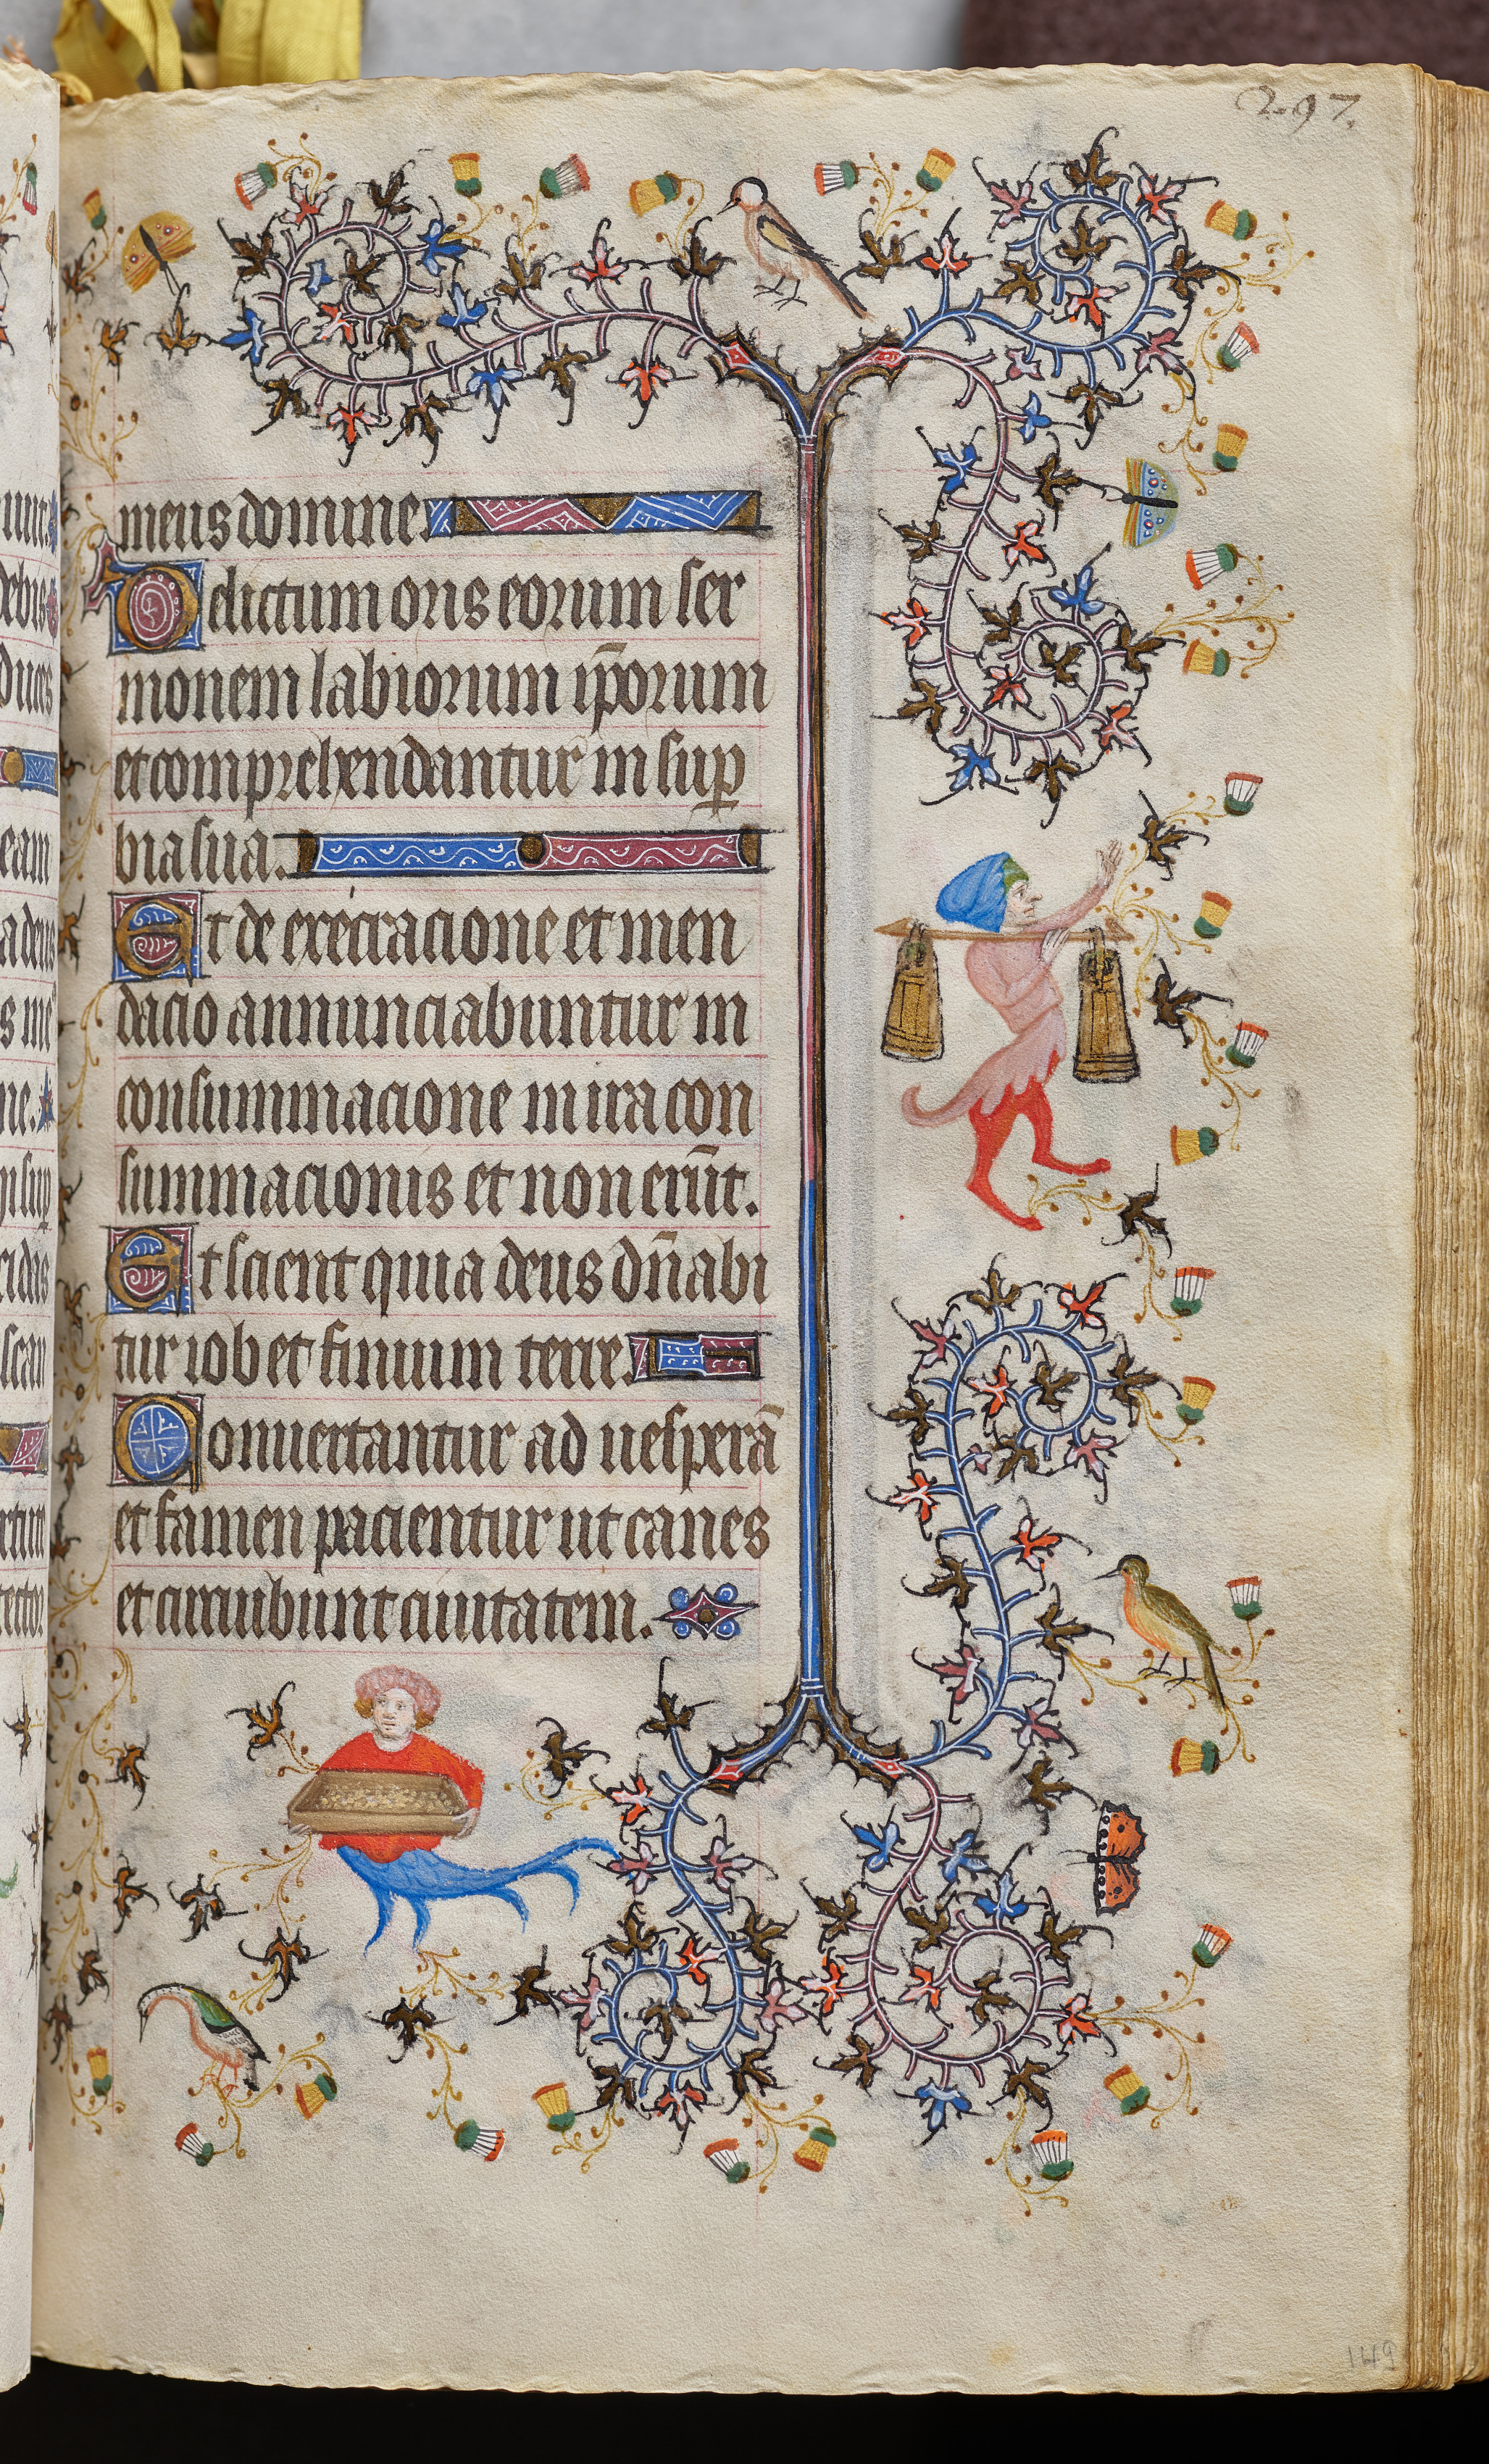 297.
meus domine.
Delictum oris eorum ser
monem labiorum ip̄orum
et comprehendantur in sup̱
bia sua.
Et de execracione et men
dacio annunciabuntur in
consummacione in ira con
summacionis et non erūt.
Et scient quia deus dn̄abi
tur iob et finium terre.
Conuertantur ad uesperā
et famen pacientur ut canes
et circuibunt ciuitatem.
149